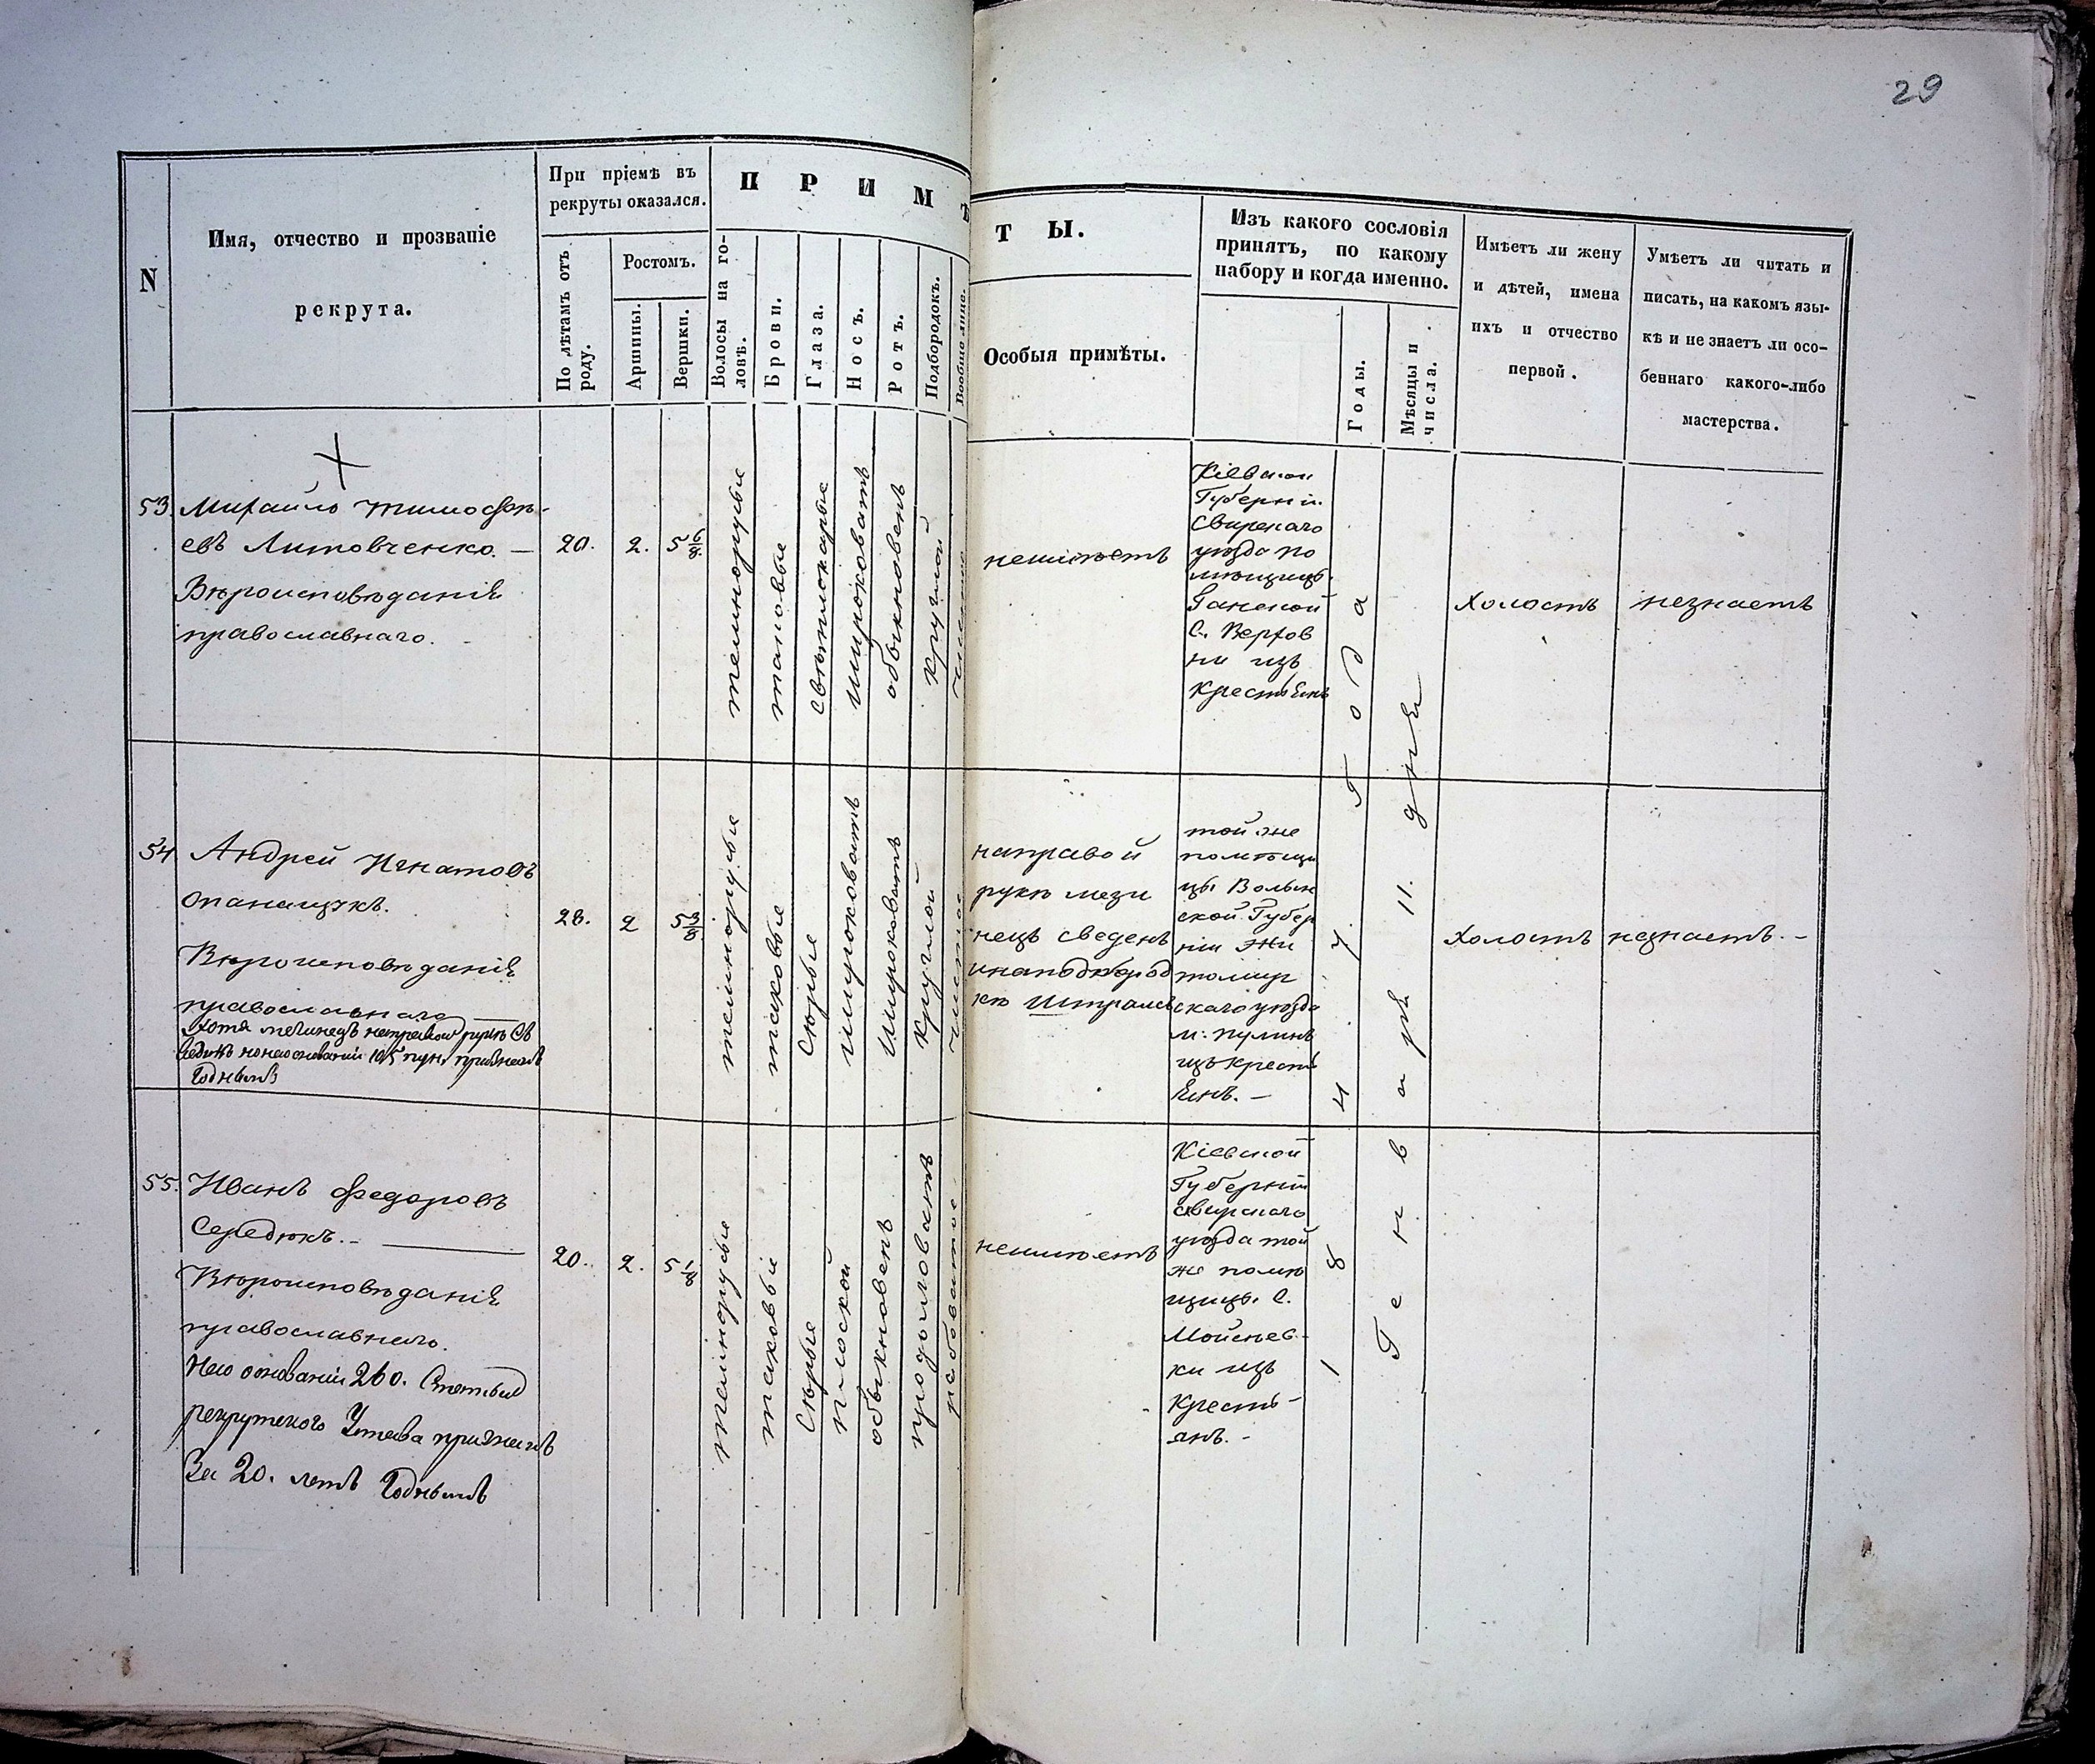 29
N
Имя, отчество и прозваніе
рекрута.
При пріемѣ въ
рекруты оказался.
По лѣтамъ отъ
роду.
Ростомъ.
Аршины.
Вершки.
П Р И М Ѣ
Т Ы.
Волосы на го-
ловѣ.
Брови.
Глаза.
Носъ.
Ротъ.
Подбородокъ.
Вообще лице.
Особыя примѣты.
Изъ какого сословія
принятъ, по какому
набору и когда именно.
Годы.
Мѣсяцы и
числа.
Имѣетъ ли жену
и дѣтей, имена
ихъ и отчество
первой.
Умѣетъ ли читать и
писать, на какомъ язы-
кѣ и не знаетъ ли осо-
беннаго какого-либо
мастерства.
53.
Михайло Тимофѣ-
евъ Литовченко. —
Вѣроисповѣданія
православнаго.
20.
2.
5 6/8.
темнорусые
таковые
свѣтлокарые
широковатъ
обыкновенъ
круглой
чистое
неимѣетъ
Кіевской
Губерніи
Сквирскаго
уѣзда по
мѣщицы
Ганской
С. Верхов
ни изъ
крестьянъ
холостъ
незнаетъ
54
Андрей Игнатовъ
Опанащукъ.
Вѣроисповѣданія
православнаго
Хотя мезинецъ направой рукѣ св
еденъ нонаосновании 105 пун. признанъ
Годнымъ
28.
2
5 3/8.
темнорусые
таковые
Сѣрые
широковатъ
широковатъ
круглой
чистое
направой
рукѣ мези
нецъ сведенъ
инаподбород
кѣ Штрамъ
той же
помѣщи
цы Волын
ской Губер
ніи Жи
томир
скаго уѣзда
м. Пулинъ
изъ кресть
янъ. —
холостъ
незнаетъ. —
55.
Иванъ Федоровъ
Середюкъ. —
Вѣроисповѣданія
православнаго.
На основаніи 260. Статьи
рекрутскаго Устава признанъ
За 20. летъ Годнымъ
20.
2.
5 1/8
темнорусые
таковые
Сѣрые
плоской
обыкновенъ
продолговатъ
рябоватое
неимѣетъ
Кіевской
Губерніи
Сквирскаго
уѣзда той
же помѣ
щицы С.
Мойсѣев-
ки изъ
Кресть-
янъ. —
1 8 4 7. Года
Генваря 11. дня